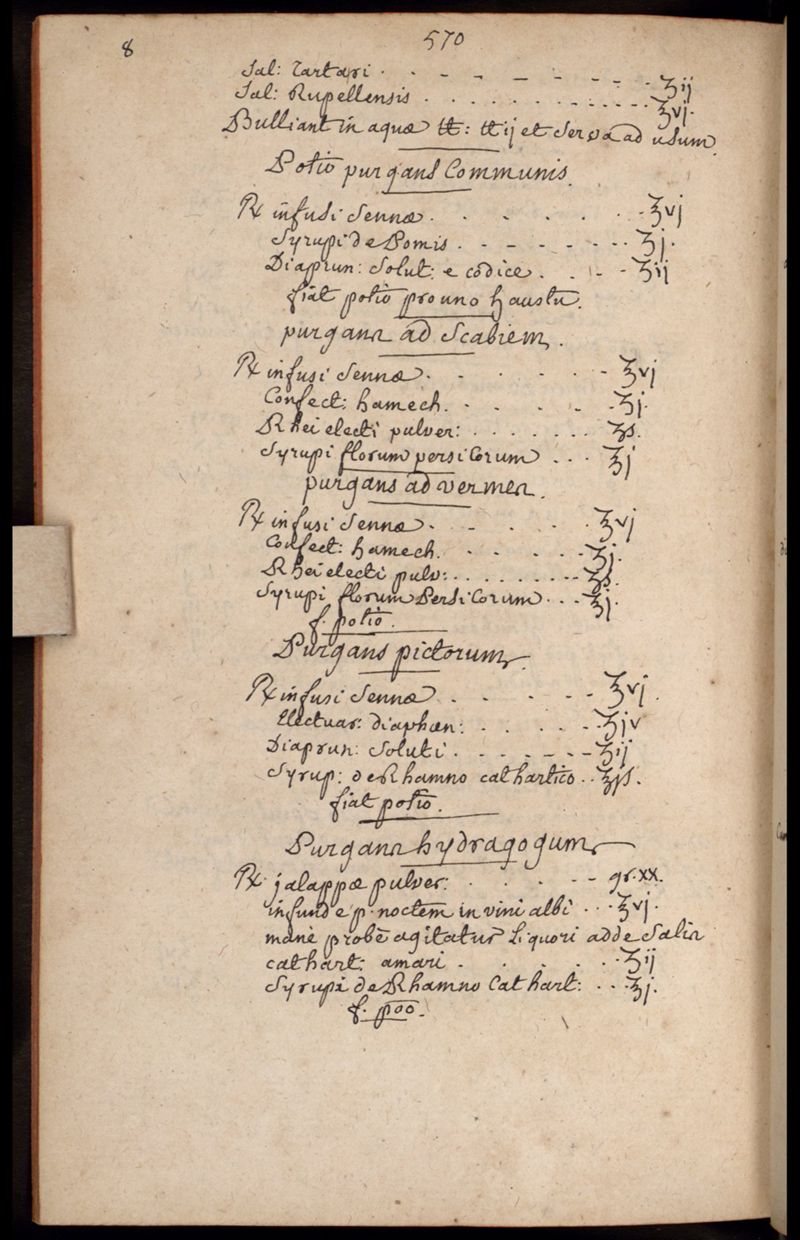 8
570
Sal: Tartari . . - - - - - - - . ʒij
Sal: Rupellensis . . . . . . . . . . . . ʒvj.
Bulliant in aquæ ℔: ℔ij et Serva ad usum
Potio purgans Communis.
℞ infusi Sennæ . . . . . . . ℥vj
Syrupi de Pomis . - - - - - . . ℥j.
Diaprun: Solut: e codice . . - - ʒij
fiat potio pro uno haustu.
purgans ad Scabiem.
℞ infusi Sennæ . . . . . - ℥vj
Confect: hamech. . . . . - ʒj.
Rhei electi pulver: . . . . . . . ʒß.
Syrupi florum persicorum . . . ℥j
purgans ad vermes.
℞ infusi Sennæ . . . . . ℥vj
Confect: hamech. . . . . - - ʒj.
Rhei electi pulv: . . . . . . . - - ʒß.
Syrupi florum Persicorum . . . ℥j.
f. potio.
Purgans pictorum.
℞ infusi Sennæ . . . - - ℥vj.
Electuar: diaphœn: . . . . - . ʒjv
Diaprun: Soluti . . - - - - - ʒij
Syrup: de Rhamno cathartico . . ℥jß.
fiat potio.
Purgans hydragogum
℞. jalappæ pulver: . . . . - - gr. xx.
infunde p. noctem in vini albi . . . ℥vj.
manè probè agitatur Liquori adde Salis
cathart: amari . . . . . . . ʒij
Syrupi de Rhamno Cathart: . . . ℥j.
f. poo.